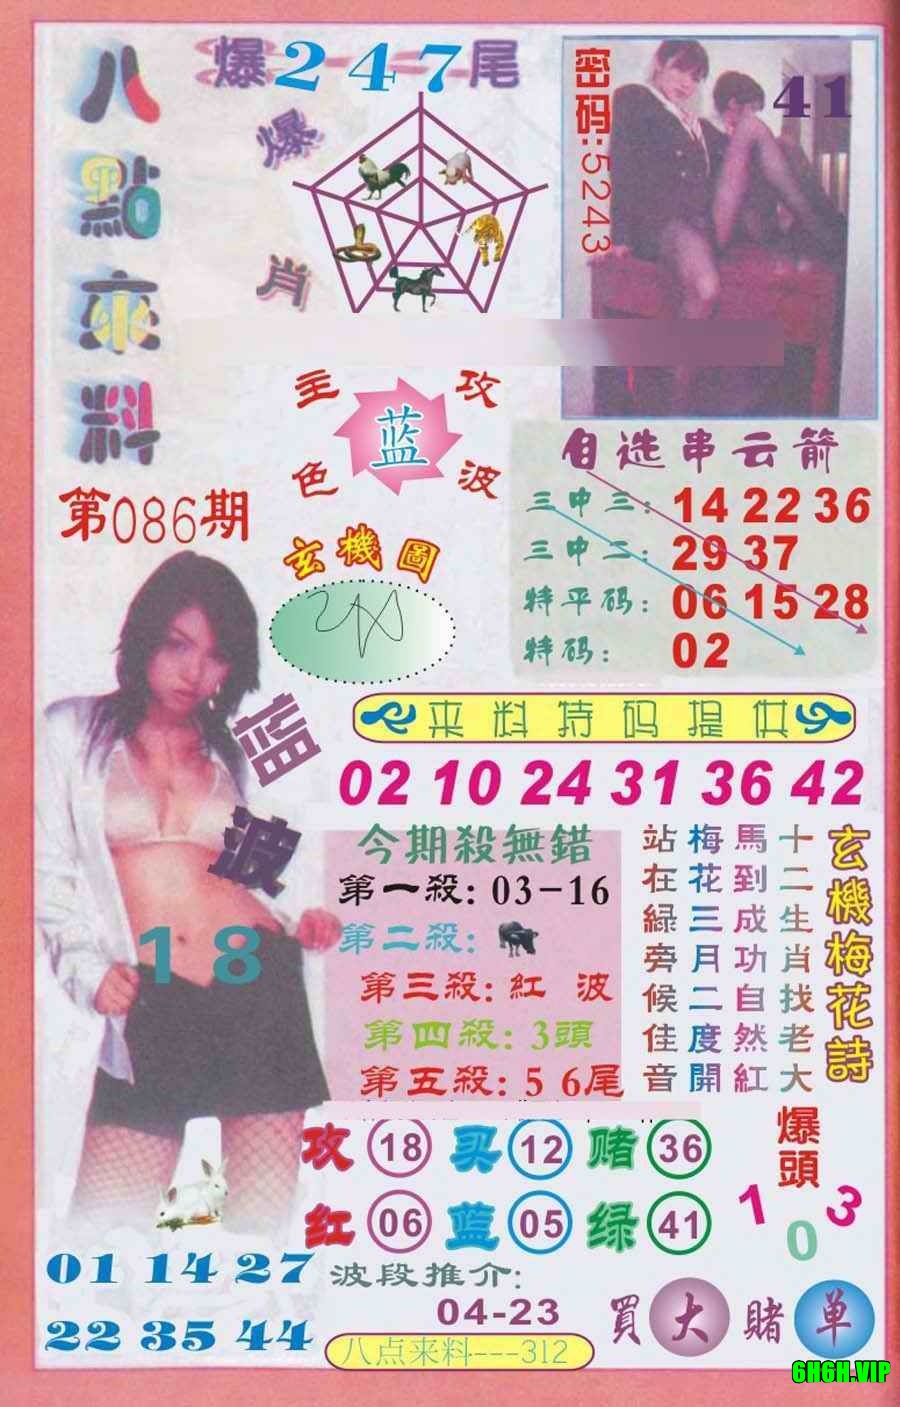 八點來料
爆247尾
爆肖
密码:5243
41
主攻
蓝
色波
第086期
玄機圖
自选串云箭
三中三: 14 22 36
三中二: 29 37
特平码: 06 15 28
特码: 02
蓝波
18
来料特码提供
02 10 24 31 36 42
今期殺無錯
第一殺: 03-16
第二殺:
第三殺: 紅 波
第四殺: 3頭
第五殺: 5 6尾
玄機梅花詩
十二生肖找老大
馬到成功自然紅
梅花三月二度開
站在綠旁候佳音
攻 18 买 12 赌 36
红 06 蓝 05 绿 41
爆頭
1 0 3
01 14 27
22 35 44
波段推介:
04-23
八点来料---312
買大賭单
6H6H.VIP